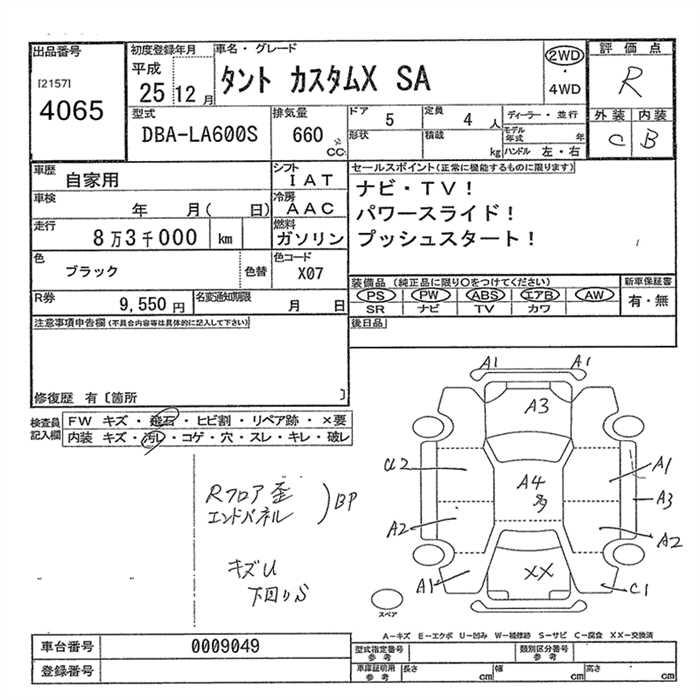 出品番号
[2157]
4065
初度登録年月
平成
25 12 月
車名・グレード
タント カスタムX SA
2WD
・
4WD
評価点
R
外装 内装
C B
型式
DBA-LA600S
排気量
660 cc
ドア 5
定員 4 人
形状
積載 kg
ディーラー・並行
モデル年式 年
ハンドル 左・右
車歴
自家用
シフト
IAT
車検 年 月( 日)
冷房
AAC
走行
8万3千000 km
燃料
ガソリン
色
ブラック
色替
色コード
X07
R券
9,550 円
名変通知期限 月 日
セールスポイント(正常に機能するものに限ります)
ナビ・TV!
パワースライド!
プッシュスタート!
装備品 (純正品に限り〇をつけてください)
PS PW ABS エアB AW
SR ナビ TV カワ
新車保証書
有・無
後日品
注意事項申告欄(不具合内容等は具体的に記入して下さい)
修復歴 有〔箇所 〕
検査員
記入欄
FW キズ・飛石・ヒビ割・リペア跡・×要
内装 キズ・汚レ・コゲ・穴・スレ・キレ・破レ
Rフロア歪
エンドパネル
)BP
キズU
下回りS
A1 A1
A3
α2
A1
A4
多
A3
A2
A2
A1
XX
C1
スペア
A-キズ E-エクボ U-凹み W-補修跡 S-サビ C-腐食 XX-交換済
車台番号 0009049
登録番号
型式指定番号
参考
類別区分番号
参考
車庫証明用
参考
長さ cm
幅 cm
高さ cm